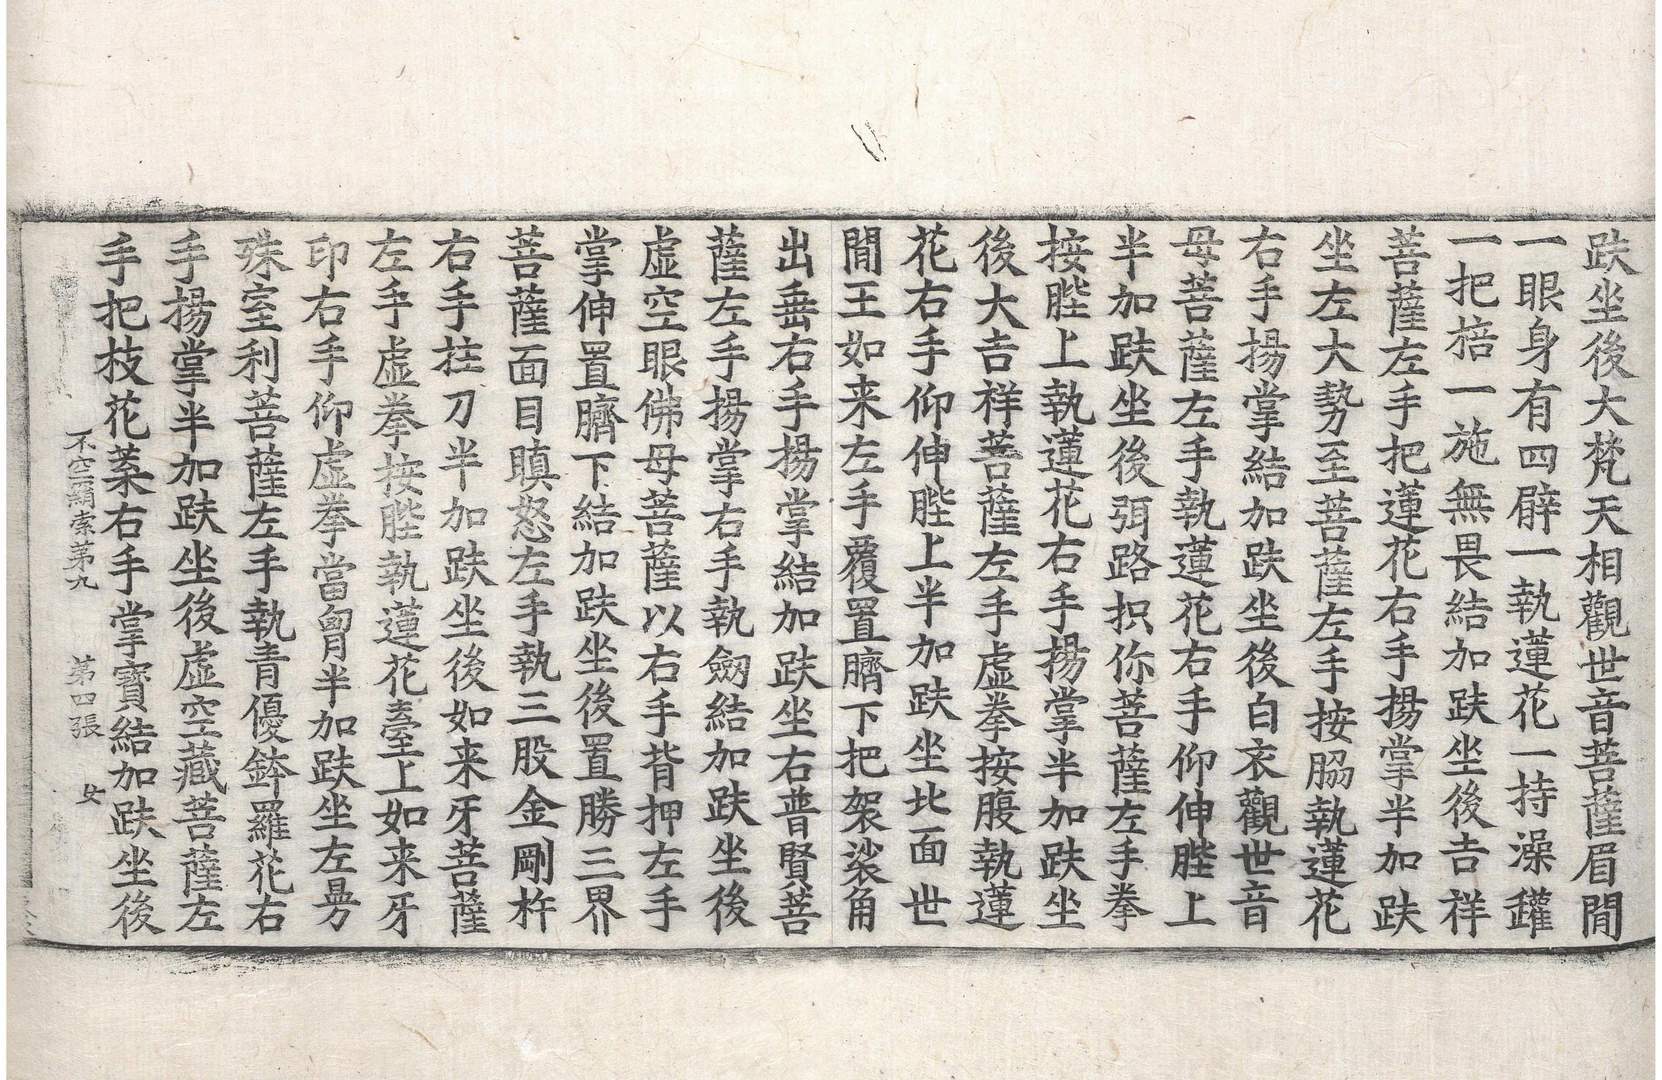 趺坐後大梵天相觀世音菩薩眉間
一眼身有四臂一執蓮花一持澡罐
一把掊一施無畏結加趺坐後吉祥
菩薩左手把蓮花右手揚掌半加趺
坐左大勢至菩薩左手按脇執蓮花
右手揚掌結加趺坐後白衣觀世音
母菩薩左手執蓮花右手仰伸䏶上
半加趺坐後弭路抧你菩薩左手拳
按䏶上執蓮花右手揚掌半加趺坐
後大吉祥菩薩左手虛拳按腹執蓮
花右手仰伸䏶上半加趺坐北面世
間王如来左手覆置臍下把袈裟角
出垂右手揚掌結加趺坐右普賢菩
薩左手揚掌右手執劒結加趺坐後
虛空眼佛母菩薩以右手背押左手
掌伸置臍下結加趺坐後置勝三界
菩薩面目瞋怒左手執三股金剛杵
右手拄刀半加趺坐後如来牙菩薩
左手虛拳按䏶執蓮花臺上如来牙
印右手仰虛拳當胷半加趺坐左曼
殊室利菩薩左手執青優鉢羅花右
手揚掌半加趺坐後虛空藏菩薩左
手把枝花菓右手掌寶結加趺坐後
不空羂索第九 第四張 女